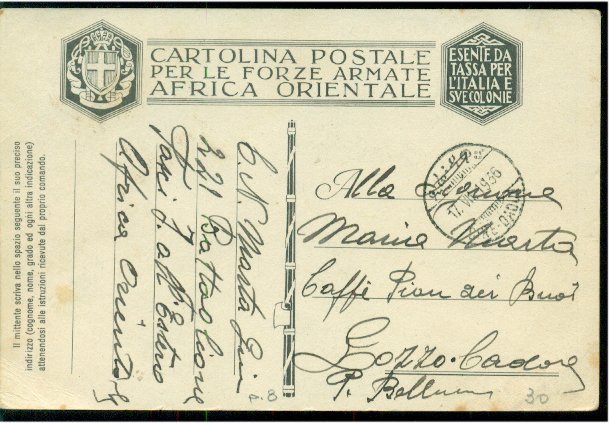 CARTOLINA POSTALE
PER LE FORZE ARMATE
AFRICA ORIENTALE
ESENTE DA
TASSA PER
L'ITALIA E
SVE COLONIE
Il mittente scriva nello spazio seguente il suo preciso
indirizzo (cognome, nome, grado ed ogni altra indicazione)
attenendosi alle istruzioni ricevute dal proprio comando.
C. N. Marta
221 Battaglione
all'Estero
Africa Orientale
1936
Alla
Maria Marta
Caffè Pian dei Buoi
Lozzo-Cadore
P. Belluno
A. 8
30